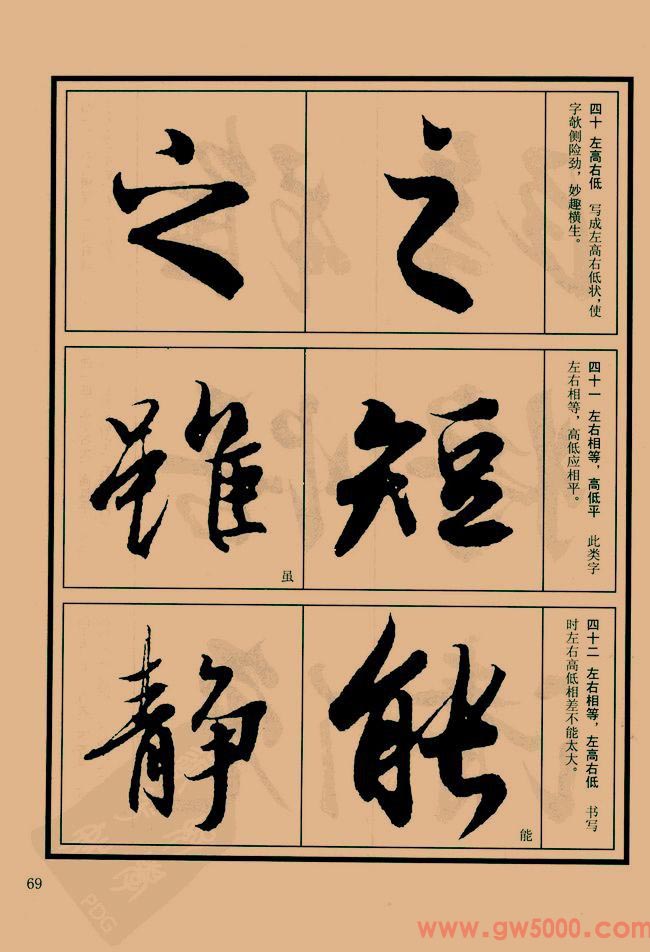 四十 左高右低 写成左高右低状，使
字欹侧险劲，妙趣横生。
之
之
四十一 左右相等，高低平 此类字
左右相等，高低应相平。
短
雖
虽
四十二 左右相等，左高右低 书写
时左右高低相差不能太大。
能
能
静
69
PDG
www.gw5000.com